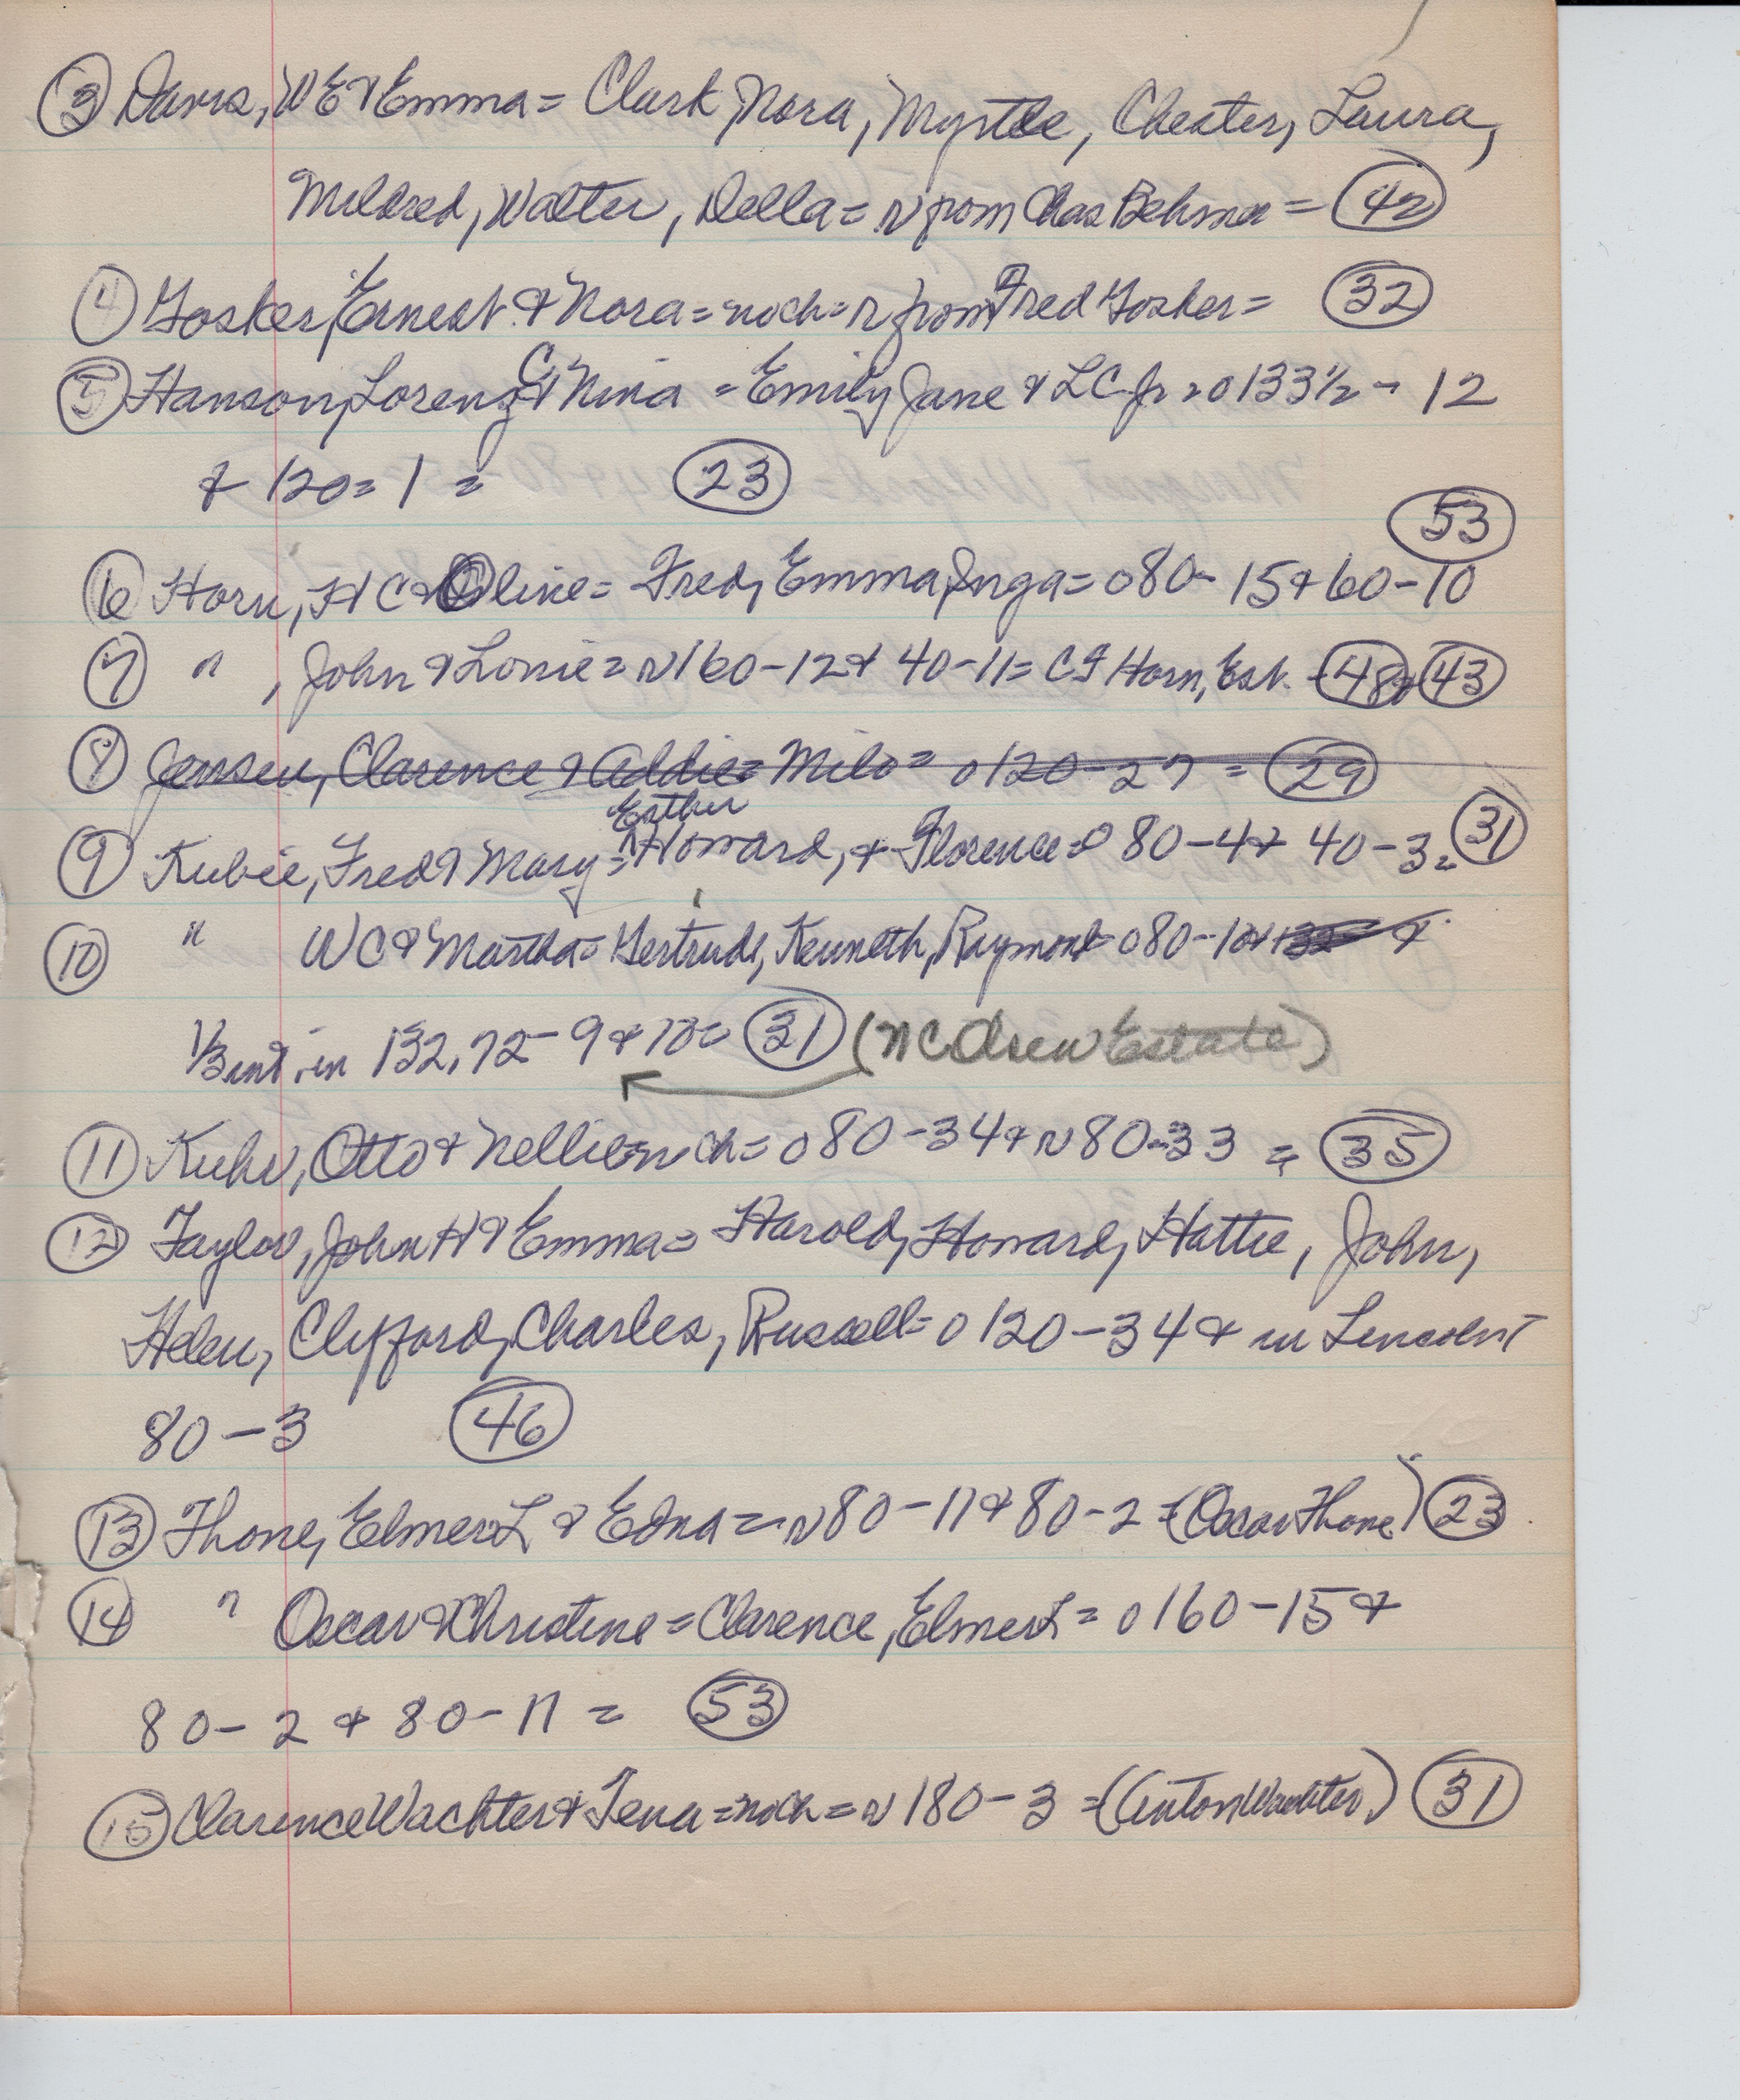 ③ Davis, W E & Emma = Clark, Nora, Myrtle, Chester, Laura,
Mildred, Walter, Della = r from Chas Behmer = 42
④ Gosker, Ernest & Nora = no ch = r from Fred Gosker = 32
⑤ Hanson, Lorenz C & Nina = Emily Jane & L C Jr = o 133 1/2 - 12
& 120 = 1 = 23
53
⑥ Horn, H C & Oline = Fred, Emma, Inga = o 80 - 15 & 60 - 10
⑦ " , John & Lonie = r 160 - 12 & 40 - 11 = C F Horn, Est. - 48 & 43
⑧ Jensen, Clarence & Addie = Milo = o 120 - 27 = 29
Esther
⑨ Kubie, Fred & Mary = Howard, & Florence = o 80 - 4 & 40 - 3 = 31
⑩ " W C & Martha = Gertrude, Kenneth, Raymond = o 80 - 10 & 132 &
1/3 int. in 132.72 - 9 & 10 = 31 (N C Drew Estate)
⑪ Kuhr, Otto & Nellie = n ch = o 80 - 34 & r 80 - 33 = 35
⑫ Taylor, John H & Emma = Harold, Howard, Hattie, John,
Helen, Clifford, Charles, Russell = o 120 - 34 & in Lincoln T
80 - 3 46
⑬ Thone, Elmer L & Edna = r 80 - 11 & 80 - 2 = (Oscar Thone) 23
⑭ " Oscar & Christine = Clarence, Elmer L = o 160 - 15 &
80 - 2 & 80 - 11 = 53
⑮ Clarence Wachter & Tena = no ch = r 180 - 3 = (Anton Wachter) 31